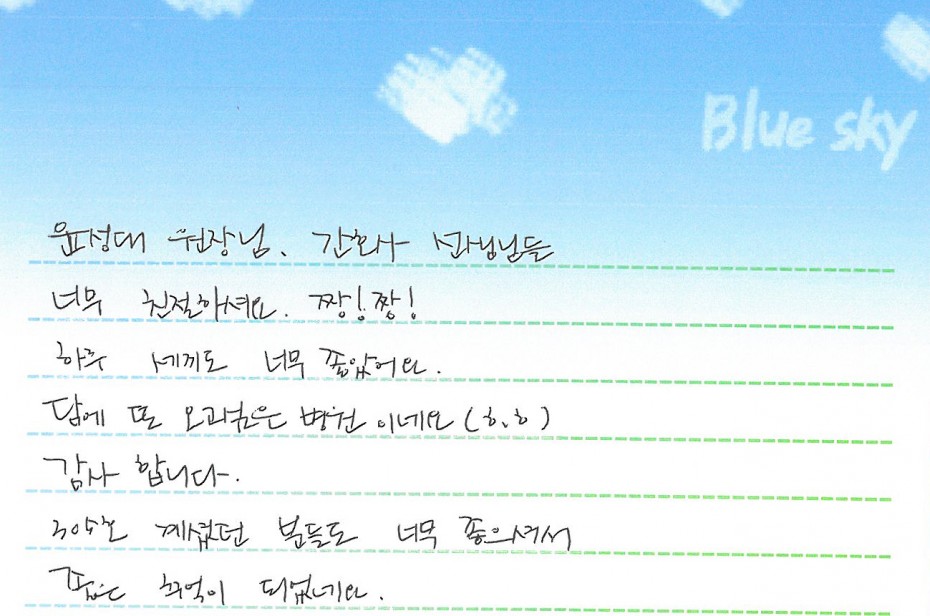 Blue sky
윤성대 원장님. 간호사 선생님들
너무 친절하세요. 짱! 짱!
하루 세끼도 너무 좋았어요.
담에 또 오고싶은 병원 이네요 (ㅎ.ㅎ)
감사 합니다.
305호 계셨던 분들도 너무 좋으셔서
좋은 추억이 되었네요.